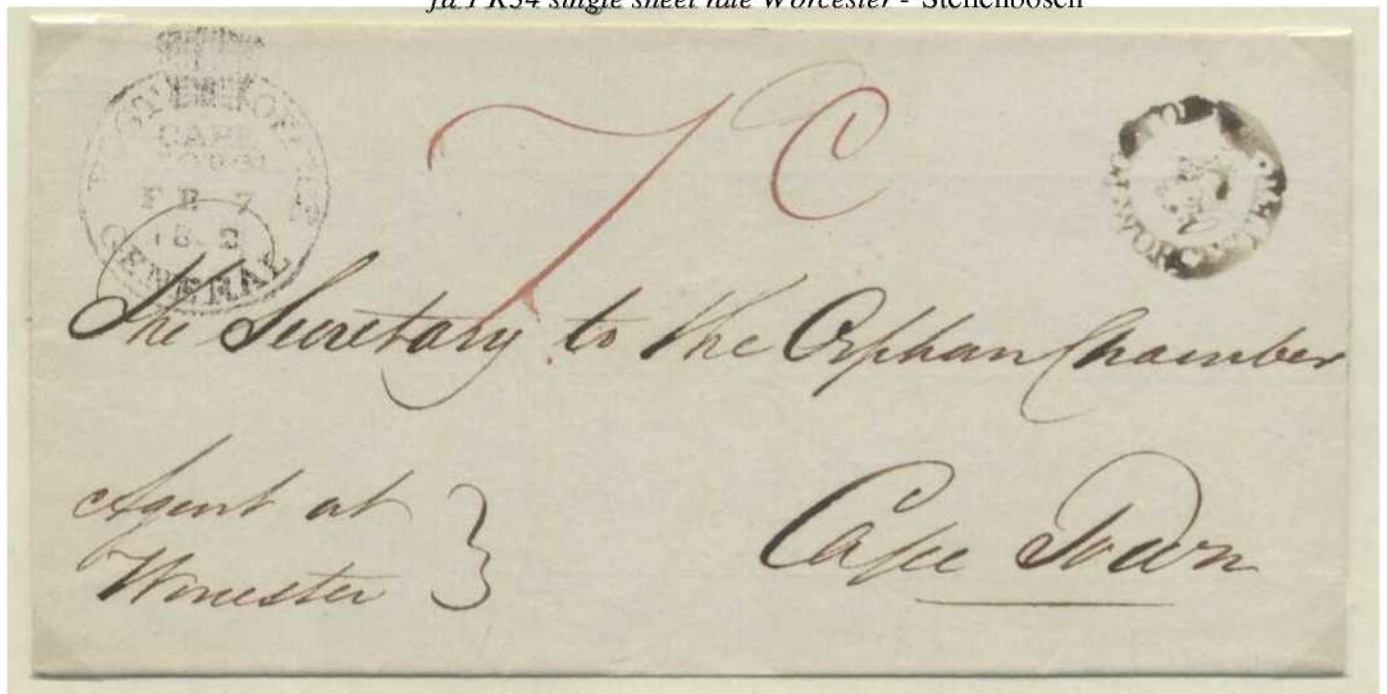 single sheet rate Worcester - Stellenbosch
POST OFFICE
CAPE
FE 7
GENERAL
7 C
The Secretary to the Orphan Chamber
Agent at
Worcester
Cape Town